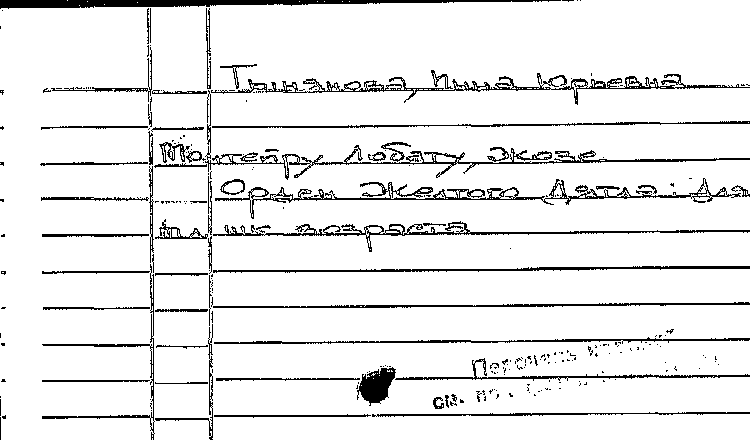 Тынянова, Инна Юрьевна
Монтейру Лобату, Жозе
Орден Желтого Дятла: Для
мл. шк. возраста
Перечень
см. на